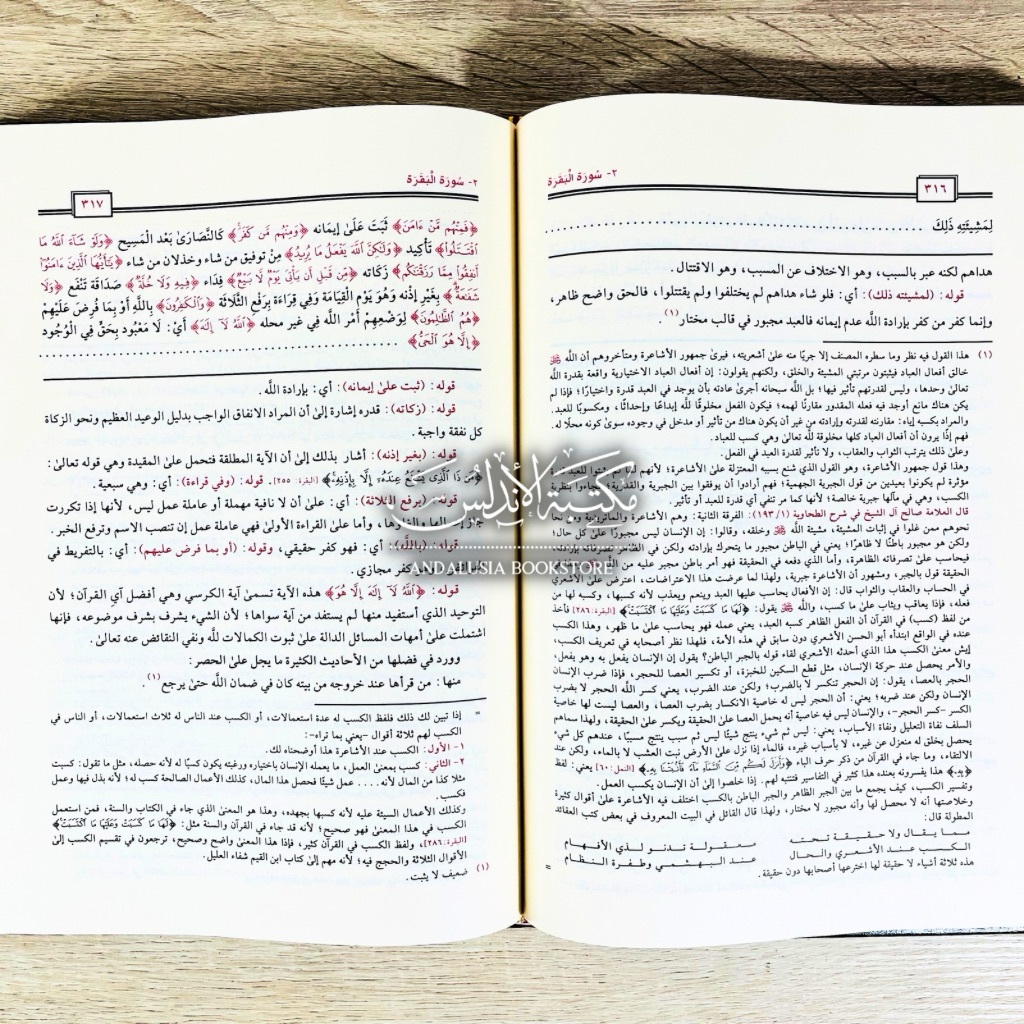 ٢- سُورَة الْبَقَرَة
٣١٦
لِمَشِيئَتِهِ ذَلِكَ
هداهم لكنه عبر بالسبب، وهو الاختلاف عن المسبب، وهو الاقتتال.
قوله: (لمشيئته ذلك): أي: فلو شاء هداهم لم يختلفوا ولم يقتتلوا، فالحق واضح ظاهر،
وإنما كفر من كفر بإرادة اللَّه عدم إيمانه فالعبد مجبور في قالب مختار(١).
(١) هذا القول فيه نظر وما سطره المصنف إلا جريًا منه على أشعريته، فيرى جمهور الأشاعرة ومتأخروهم أن اللَّه ﷻ
خالق أفعال العباد فيثبتون مرتبتي المشيئة والخلق، ولكنهم يقولون: إن أفعال العباد الاختيارية واقعة بقدرة اللَّه
تعالى وحدها، وليس لقدرتهم تأثير فيها؛ بل اللَّه سبحانه أجرى عادته بأن يوجد في العبد قدرة واختيارًا؛ فإذا لم
يكن هناك مانع أوجد فيه فعله المقدور مقارنًا لهمه؛ فيكون الفعل مخلوقًا للَّه إبداعًا وإحداثًا، ومكسوبًا للعبد.
والمراد بكسبه إياه: مقارنته لقدرته وإرادته من غير أن يكون هناك من تأثير أو مدخل في وجوده سوى كونه محلًا له.
فهم إذًا يرون أن أفعال العباد كلها مخلوقة للَّه تعالى وهي كسب للعباد.
وعلى ذلك يترتب الثواب والعقاب، ولا تأثير لقدرة العبد في الفعل.
وهذا قول جمهور الأشاعرة، وهو القول الذي شنع بسببه المعتزلة على الأشاعرة؛ لأنهم لما لم يثبتوا للعبد قدرة
مؤثرة لم يكونوا بعيدين من قول الجبرية الجهمية؛ فهم أرادوا أن يوفقوا بين الجبرية والقدرية؛ فجاءوا بنظرية
الكسب، وهي في مآلها جبرية خالصة؛ لأنها كما مر تنفي أي قدرة للعبد أو تأثير.
قال العلامة صالح آل الشيخ في شرح الطحاوية (١/١٩٣): الفرقة الثانية: وهم الأشاعرة والماتريدية ومن نحا
نحوهم ممن غلوا في إثبات المشيئة، مشيئة اللَّه وخلقه، وقالوا: إن الإنسان ليس مجبورًا على كل حال؛
ولكن هو مجبور باطنًا لا ظاهرًا؛ يعني في الباطن مجبور ما يتحرك بإرادته ولكن في الظاهر تصرفاته بإرادته،
فيحاسب على تصرفاته الظاهرة، وأما الذي دفعه في الحقيقة فهو أمر باطن مجبر عليه من
الحقيقة قول بالجبر، ومشهور أن الأشاعرة جبرية، ولهذا لما عرضت هذا الاعتراضات، اعترض على الأشعري
في الحساب والعقاب والثواب قال: إن الأفعال يحاسب عليها العبد وينعم ويعذب لأنه كسبها، وكسبه لها من
فعله، فإذا يعاقب ويثاب على ما كسب، واللَّه ﷻ يقول: ﴿لَهَا مَا كَسَبَتْ وَعَلَيْهَا مَا اكْتَسَبَتْ﴾ [البقرة: ٢٨٦] فأخذ
من لفظ (كسب) في القرآن أن الفعل الظاهر كسبه العبد، يعني عمله فهو يحاسب على ما ظهر، وهذا الكسب
عنده في الواقع ابتدأه أبو الحسن الأشعري دون سابق في هذه الأمة، فلهذا نظر أصحابه في تعريف الكسب،
إيش معنى الكسب هذا الذي أحدثه الأشعري لقاء قوله بالجبر الباطن؟ يقول إن الإنسان يفعل به وهو يفعل،
والأمر يحصل عند حركة الإنسان، مثل قطع السكين للخبزة، أو تكسير العصا للحجر، فإذا ضرب الإنسان
الحجر بالعصا، يقول: إن الحجر تنكسر لا بالضرب؛ ولكن عند الضرب، يعني كسر اللَّه الحجر لا بضرب
الإنسان ولكن عند ضربه؛ يعني: أن الحجر ليس له خاصية الانكسار بضرب العصا، والعصا ليست لها خاصية
الكسر -كسر الحجر-، والإنسان ليس فيه خاصية أنه يحمل العصا على الحقيقة ويكسر على الحقيقة، ولهذا سماهم
السلف نفاة التعليل ونفاة الأسباب، يعني: ليس ثم شيء ينتج شيئًا ليس ثم سبب ينتج مسببًا، عندهم كل شيء
يحصل بخلق له منعزل عن غيره، لا بأسباب غيره، فالماء إذا نزل على الأرض نبت العشب لا بالماء، ولكن عند
الالتقاء، وما جاء في القرآن من ذكر حرف الباء ﴿وَأَنزَلَ لَكُم مِّنَ السَّمَاءِ مَاءً فَأَنبَتْنَا بِهِ﴾ [النمل: ٦٠] يعني: لفظ
﴿بِهِ﴾ هذا يفسرونه بعنده هذا كثير في التفاسير فتنتبه لهم. إذا خلصوا إلى أن الإنسان يكسب العمل.
وتفسير الكسب، كيف يجمع ما بين الجبر الظاهر والجبر الباطن بالكسب اختلف فيه الأشاعرة على أقوال كثيرة
وخلاصتها أنه لا محصل لها وأنه مجبور لا مختار، ولهذا قال القائل في البيت المعروف في بعض كتب العقائد
المطولة قال:
مما يقال ولا حقيقة تحته معقولة تدنو لذي الأفهام
الكسب عند الأشعري والحال عند البهشمي وطفرة النظام
هذه ثلاثة أشياء لا حقيقة لها اخترعها أصحابها دون حقيقة. =
٢- سُورَة الْبَقَرَة
٣١٧
﴿فَمِنْهُم مَّنْ ءَامَنَ﴾ ثَبَتَ عَلَى إيمانه ﴿وَمِنْهُم مَّن كَفَرَ﴾ كَالنَّصَارَى بَعْد الْمَسِيح ﴿وَلَوْ شَاءَ اللَّهُ مَا
اقْتَتَلُوا﴾ تَأْكِيد ﴿وَلَكِنَّ اللَّهَ يَفْعَلُ مَا يُرِيدُ﴾ مِنْ توفيق من شاء وخذلان من شاء ﴿يَأَيُّهَا الَّذِينَ ءَامَنُوا
أَنفِقُوا مِمَّا رَزَقْنَكُم﴾ زَكَاته ﴿مِّن قَبْلِ أَن يَأْتِيَ يَوْمٌ لَّا بَيْعٌ﴾ فِدَاء ﴿فِيهِ وَلَا خُلَّةٌ﴾ صَدَاقَة تَنْفَع ﴿وَلَا
شَفَعَةٌ﴾ بِغَيْرِ إذْنه وَهُوَ يَوْم الْقِيَامَة وَفِي قِرَاءَة بِرَفْعِ الثَّلَاثَة ﴿وَالْكَفِرُونَ﴾ بِاللَّهِ أَوْ بِمَا فَرَضَ عَلَيْهِمْ
﴿هُمُ الظَّلِمُونَ﴾ لِوَضْعِهِمْ أَمْر اللَّه فِي غير محله ﴿اللَّهُ لَا إِلَهَ﴾ أَيْ: لَا مَعْبُود بِحَقٍّ فِي الْوُجُود
﴿إِلَّا هُوَ الْحَيُّ﴾
قوله: (ثبت على إيمانه): أي: بإرادة اللَّه.
قوله: (زكاته): قدره إشارة إلى أن المراد الانفاق الواجب بدليل الوعيد العظيم ونحو الزكاة
كل نفقة واجبة.
قوله: (بغير إذنه): أشار بذلك إلى أن الآية المطلقة فتحمل على المقيدة وهي قوله تعالى:
﴿مَن ذَا الَّذِي يَشْفَعُ عِندَهُ إِلَّا بِإِذْنِهِ﴾ [البقرة: ٢٥٥]. قوله: (وفي قراءة): أي: وهي سبعية.
قوله: (برفع الثلاثة): أي: على أن لا نافية مهملة أو عاملة عمل ليس، لأنها إذا تكررت
جاز إعمالها وإلغاؤها، وأما على القراءة الأولى فهي عاملة عمل إن تنصب الاسم وترفع الخبر.
قوله: (بالله): أي: فهو كفر حقيقي، وقوله: (أو بما فرض عليهم): أي: بالتفريط في
كفر مجازي.
قوله: ﴿اللَّهُ لَا إِلَهَ إِلَّا هُوَ﴾ هذه الآية تسمى آية الكرسي وهي أفضل آي القرآن؛ لأن
التوحيد الذي أستفيد منها لم يستفد من آية سواها؛ لأن الشيء يشرف بشرف موضوعه، فإنها
اشتملت على أمهات المسائل الدالة على ثبوت الكمالات للَّه ونفي النقائص عنه تعالى.
وورد في فضلها من الأحاديث الكثيرة ما يجل على الحصر:
منها: من قرأها عند خروجه من بيته كان في ضمان اللَّه حتى يرجع(١).
= إذا تبين لك ذلك فلفظ الكسب له عدة استعمالات، أو الكسب عند الناس له ثلاث استعمالات، أو الناس في
الكسب لهم ثلاثة أقوال -يعني بما تراه-:
١- الأول: الكسب عند الأشاعرة هذا أوضحناه لك.
٢- الثاني: كسب بمعنى العمل، ما يعمله الإنسان باختياره ورغبته يكون كسبًا له لأنه حصله، مثل ما تقول: كسبت
مثلا كذا من المال لأنه.... عمل شيئًا فحصل هذا المال، كذلك الأعمال الصالحة كسب له؛ لأنه بذل فيها وعمل
فكسب.
وكذلك الأعمال السيئة عليه لأنه كسبها بجهده، وهذا هو المعنى الذي جاء في الكتاب والسنة، فمن استعمل
الكسب في هذا المعنى فهو صحيح؛ لأنه قد جاء في القرآن والسنة مثل: ﴿لَهَا مَا كَسَبَتْ وَعَلَيْهَا مَا اكْتَسَبَتْ﴾
[البقرة: ٢٨٦]، ولفظ الكسب في القرآن كثير، فإذا هذا المعنى واضح وصحيح، ترجعون في تقسيم الكسب إلى
الأقوال الثلاثة والحجج فيه؛ لأنه مهم إلى كتاب ابن القيم شفاء العليل.
(١) ضعيف لا يثبت.
مكتبة الأندلس
ANDALUSIA BOOKSTORE